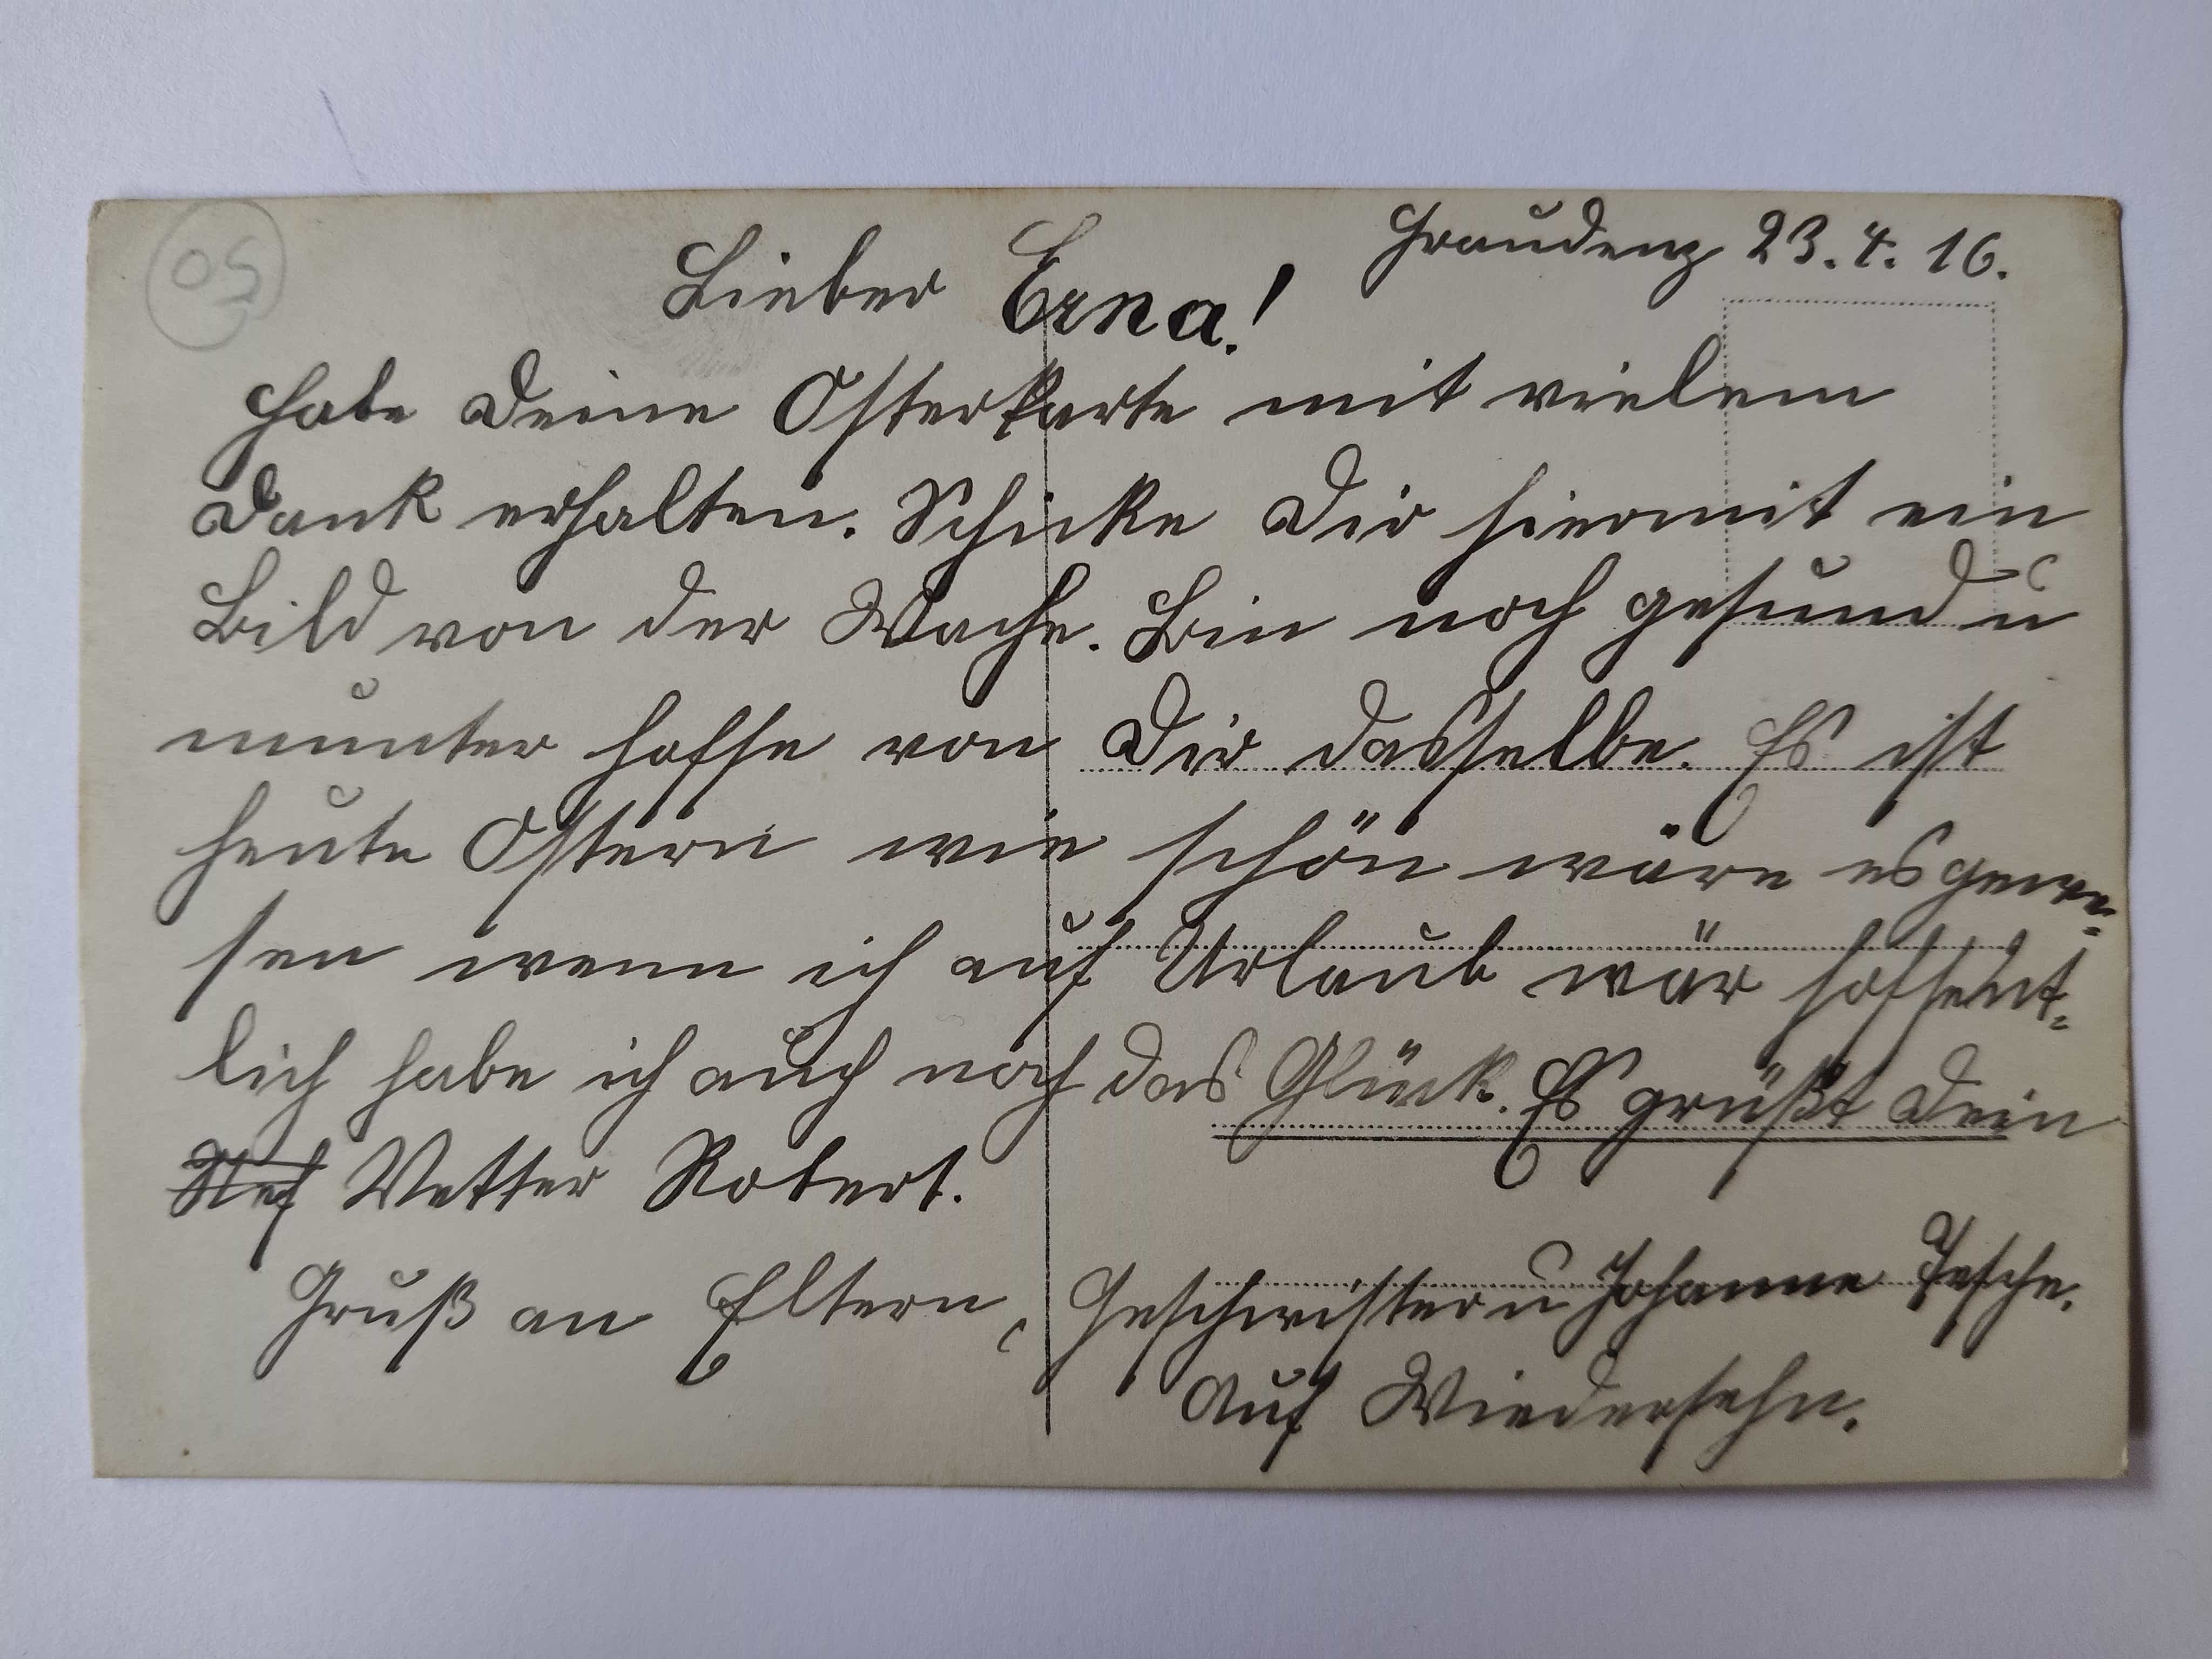 Graudenz 23.4.16.
Lieber Erna!
Habe Deine Osterkarte mit vielem
Dank erhalten. Schicke Dir hiermit ein
Bild von der Wache. Bin noch gesund u
munter hoffe von Dir dasselbe. Es ist
heute Ostern wie schön wäre es gewe=
sen wenn ich auf Urlaub wär hoffent=
lich habe ich auch noch das Glück. Es grüßt Dein
Nef Vetter Robert.
Gruß an Eltern, Geschwister u Johanne Jesche.
Auf Wiedersehn.
50